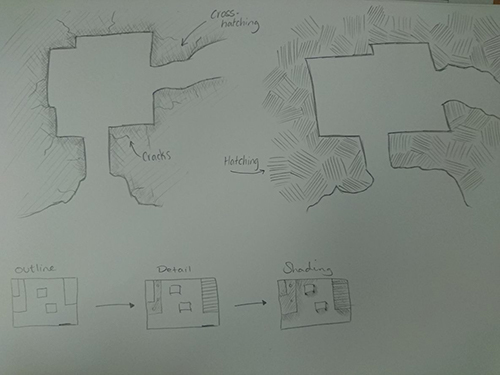 Cross-
hatching
Cracks
Hatching
Outline
Detail
Shading